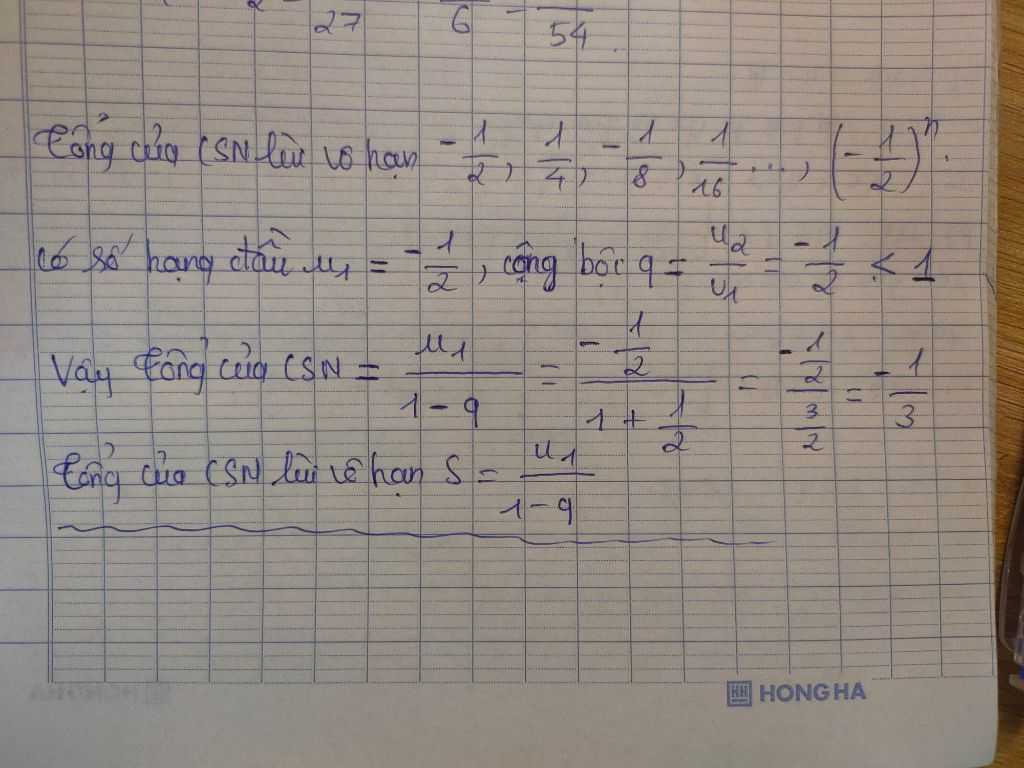 2 27 6 - 54.
Tổng của CSN lùi vô hạn -1/2, 1/4, -1/8, 1/16 ..., (-1/2)^n.
có số hạng đầu u1 = -1/2, cộng bội q = u2/u1 = -1/2 < 1
Vậy tổng của CSN = u1/(1-q) = (-1/2)/(1+1/2) = (-1/2)/(3/2) = -1/3
Tổng của CSN lùi vô hạn S = u1/(1-q)
HONG HA